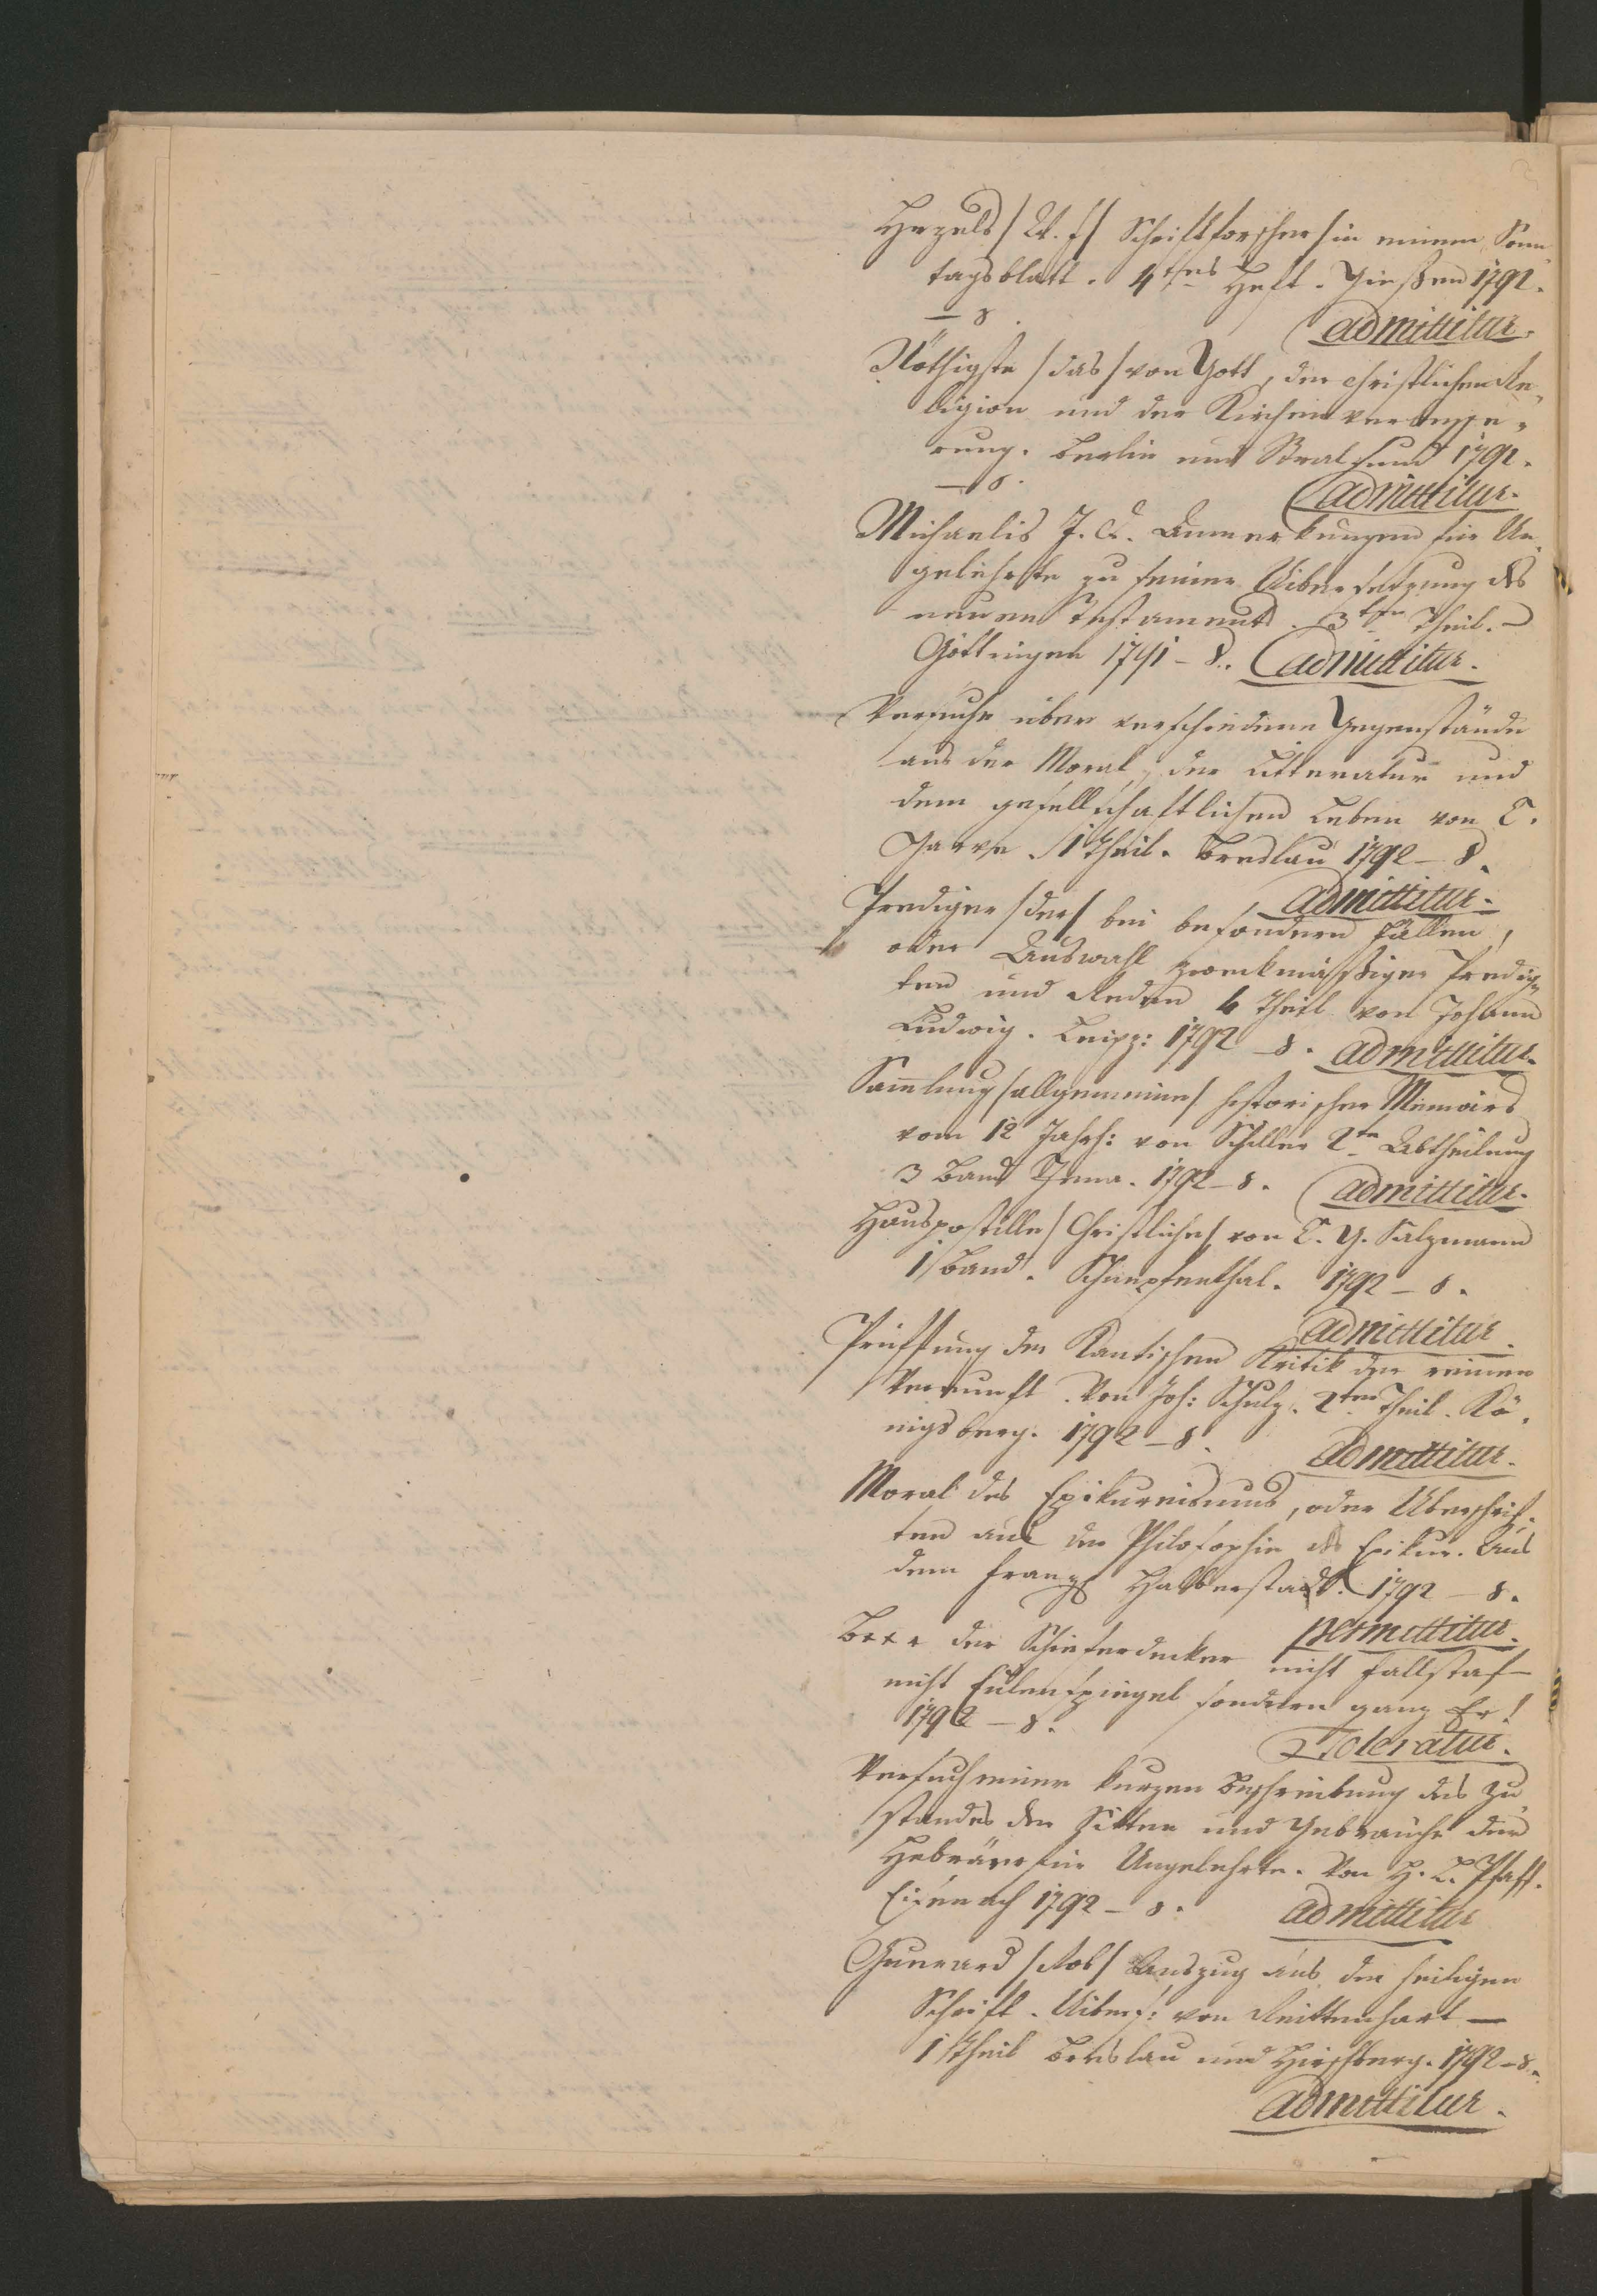 Hezels /W. f/ Schriftforscher /in einem Sonn
tagsblatt. 4tes Heft. Gießen 1792.
— 8.
admittitur.
Nöthigste /das/ von Gott, der christlichen Re,
ligion und der Kirchenverbesse,
rung. Berlin und Stralsund 1792.
— 8.
admittitur.
Michaelis J. D. Anmerkungen für Un,
gelehrte zu seiner Uibersetzung des
neuen Testaments. 3ter Theil. –
Göttingen 1791 – 8. admittitur.
Versuche über verschiedene Gegenstände
aus der Moral, der Litteratur und
dem gesellschaftlichen Leben von C.
Garve. 1 Theil. Breslau 1792 – 8.
admittitur.
Prediger /der/ bei besondern Fällen,
oder Auswahl zweckmäßiger Predig,
ten und Reden 4 Theil von Johann
Ludwig. Leipz: 1792 – 8. admittitur.
Sammlung /allgemeine/ historischer Memoirs
vom 12 Jahrh: von Schiller 2te Abtheilung
3 Band Jena. 1792 – 8. admittitur.
Hauspostille /Christliche/ von C. G. Salzmann
1 Band. Schnepfenthal. 1792 – 8.
admittitur.
Prüffung der Kantischen Kritik der reinen
Vernunft. Von Joh: Schulz. 2ter Theil. Kö,
nigsberg. 1792 – 8.
admittitur.
Moral des Epikureismus, oder Uberschrif,
ten aus der Philosophie des Epikur. Aus
dem Franz: Halberstadt. 1792 – 8.
permittitur.
der Schieferdecker nicht Fallstaf
nicht Eulenspiegel sondern ganz Er!
1792 – 8.
Toleratur.
Versuch einer kurzen Beschreibung des Zu,
standes der Sitten und Gebräuche der
Hebräer für Ungelehrte. Von H. L. Pfaff.
Eisenach 1792 – 8. admittitur
/Rob/ Auszug aus der heiligen
Schrift. Uibers: von Reittenhart —
1 Theil Breslau und Hirschberg. 1792 – 8.
admittitur.